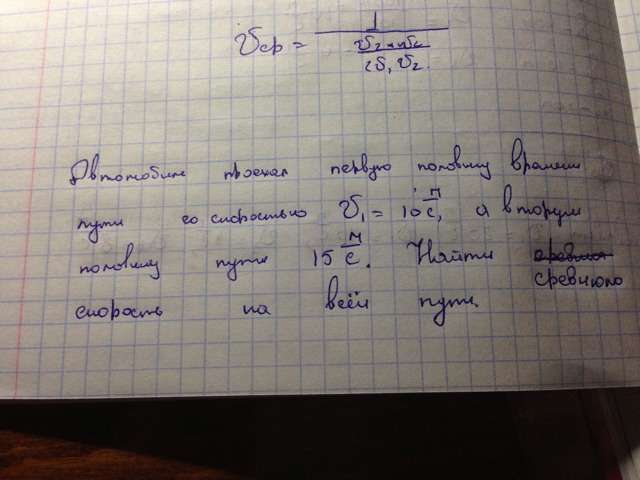 Vср = 1 / ((V₂ + V₁) / (2V₁V₂))
Автомобиль проехал первую половину времени
пути со скоростью V₁ = 10 м/с, а вторую
половину пути 15 м/с. Найти
среднюю
скорость на всём пути.